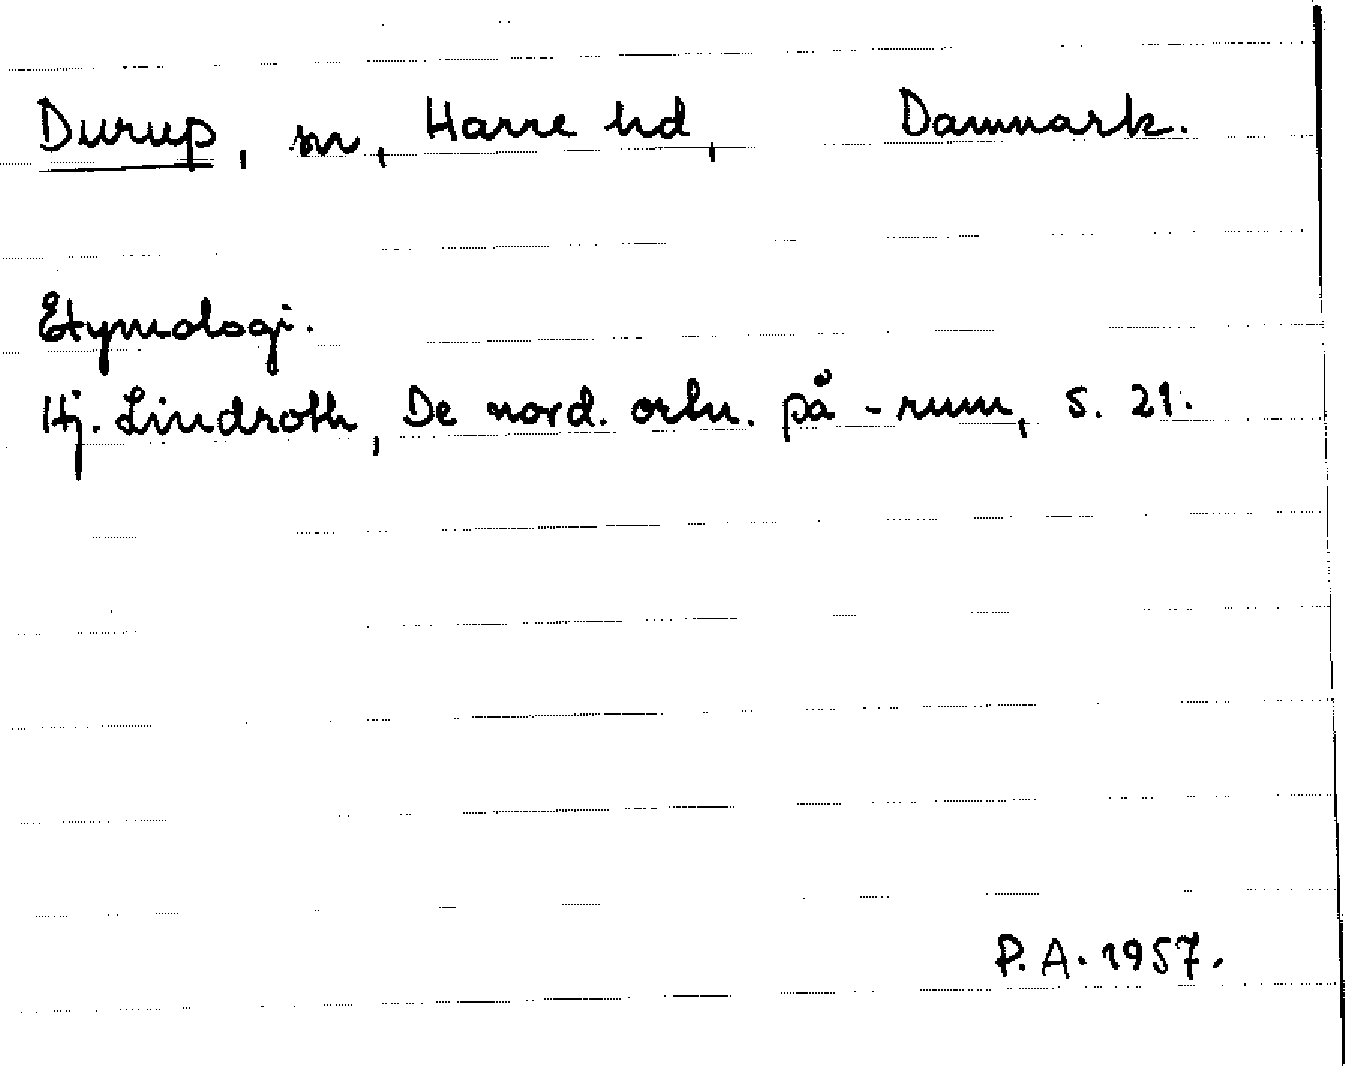 Durup, sn, Harre hd, Danmark.
Etymologi.
Hj. Lindroth, De nord. ortn. på -rum, s. 21.
P. A. 1957.